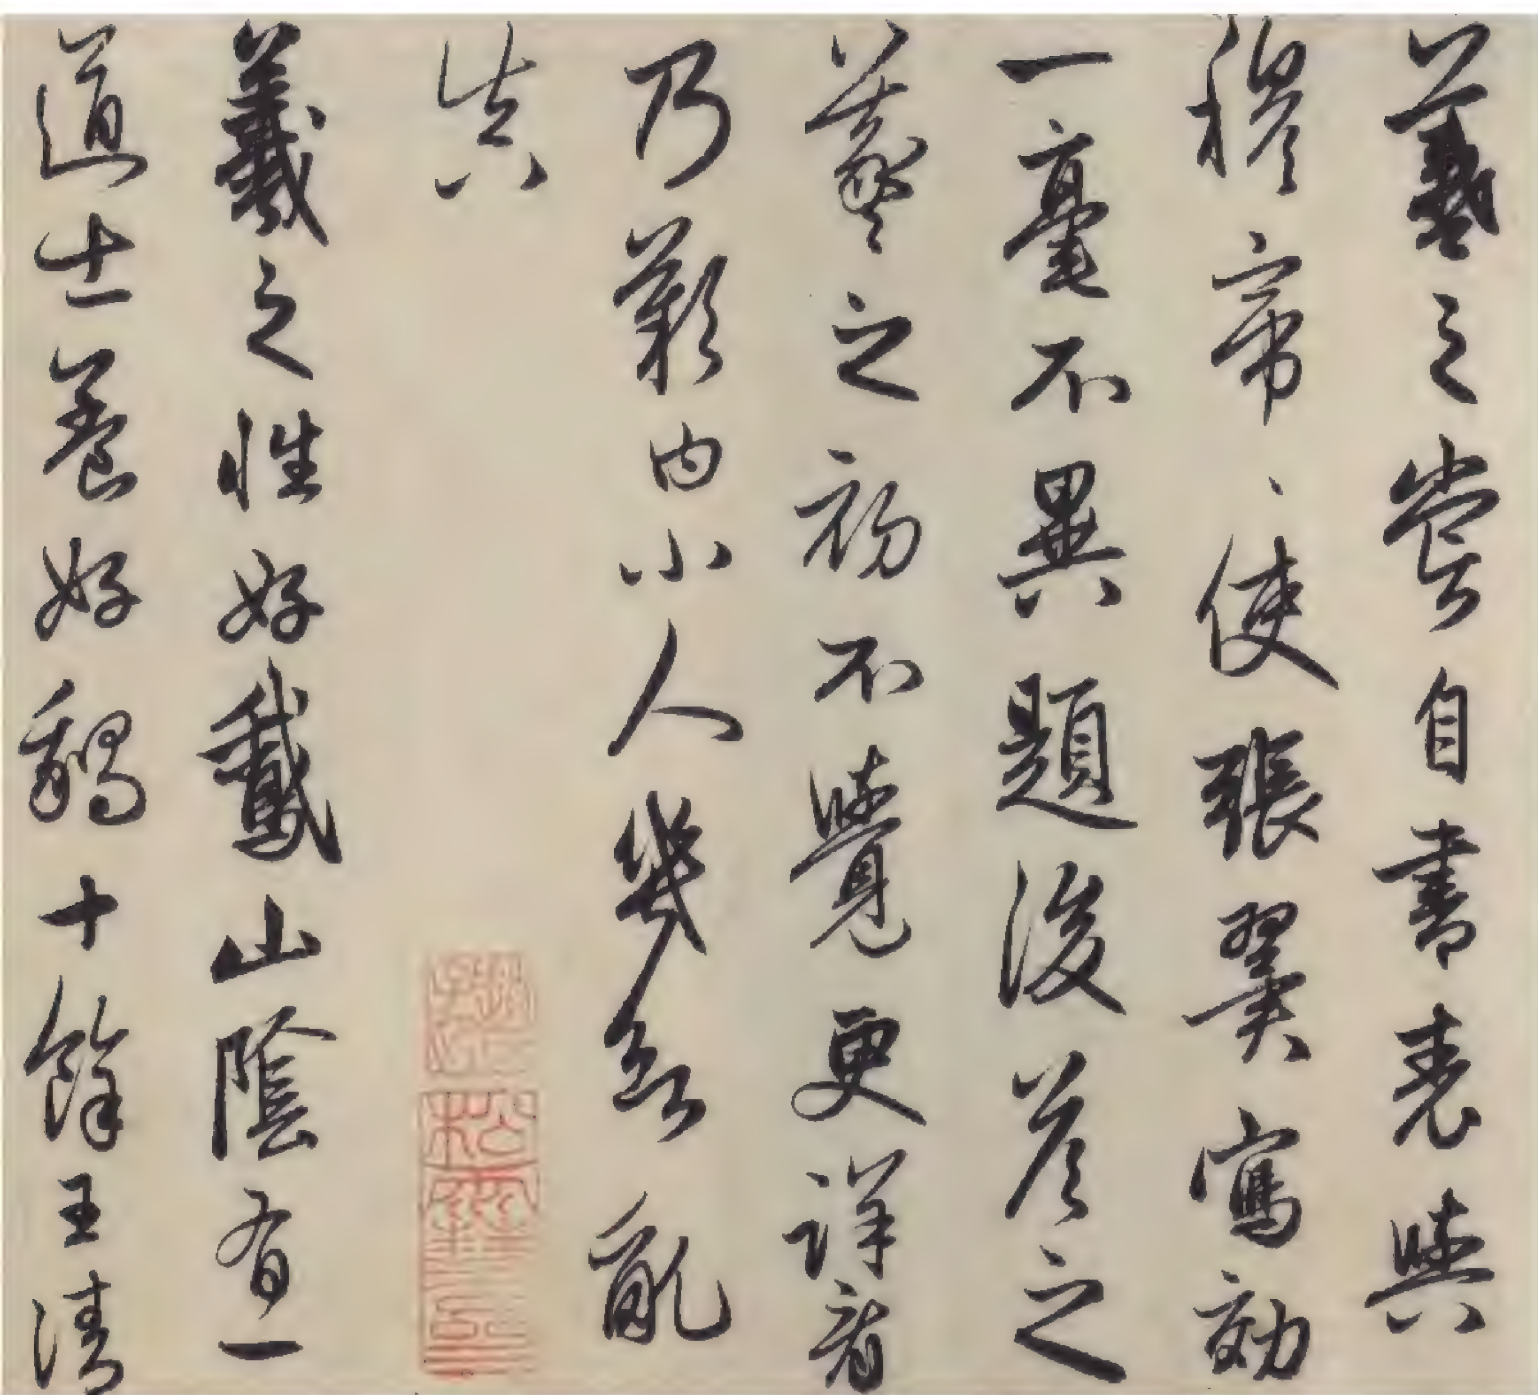 羲之嘗自書表與
穆帝、使張翼寫効
一毫不異題後答之
羲之初不覺更詳看
乃歎曰小人幾欲亂
真
羲之性好鵞山陰有一
道士養好鵝十餘王清